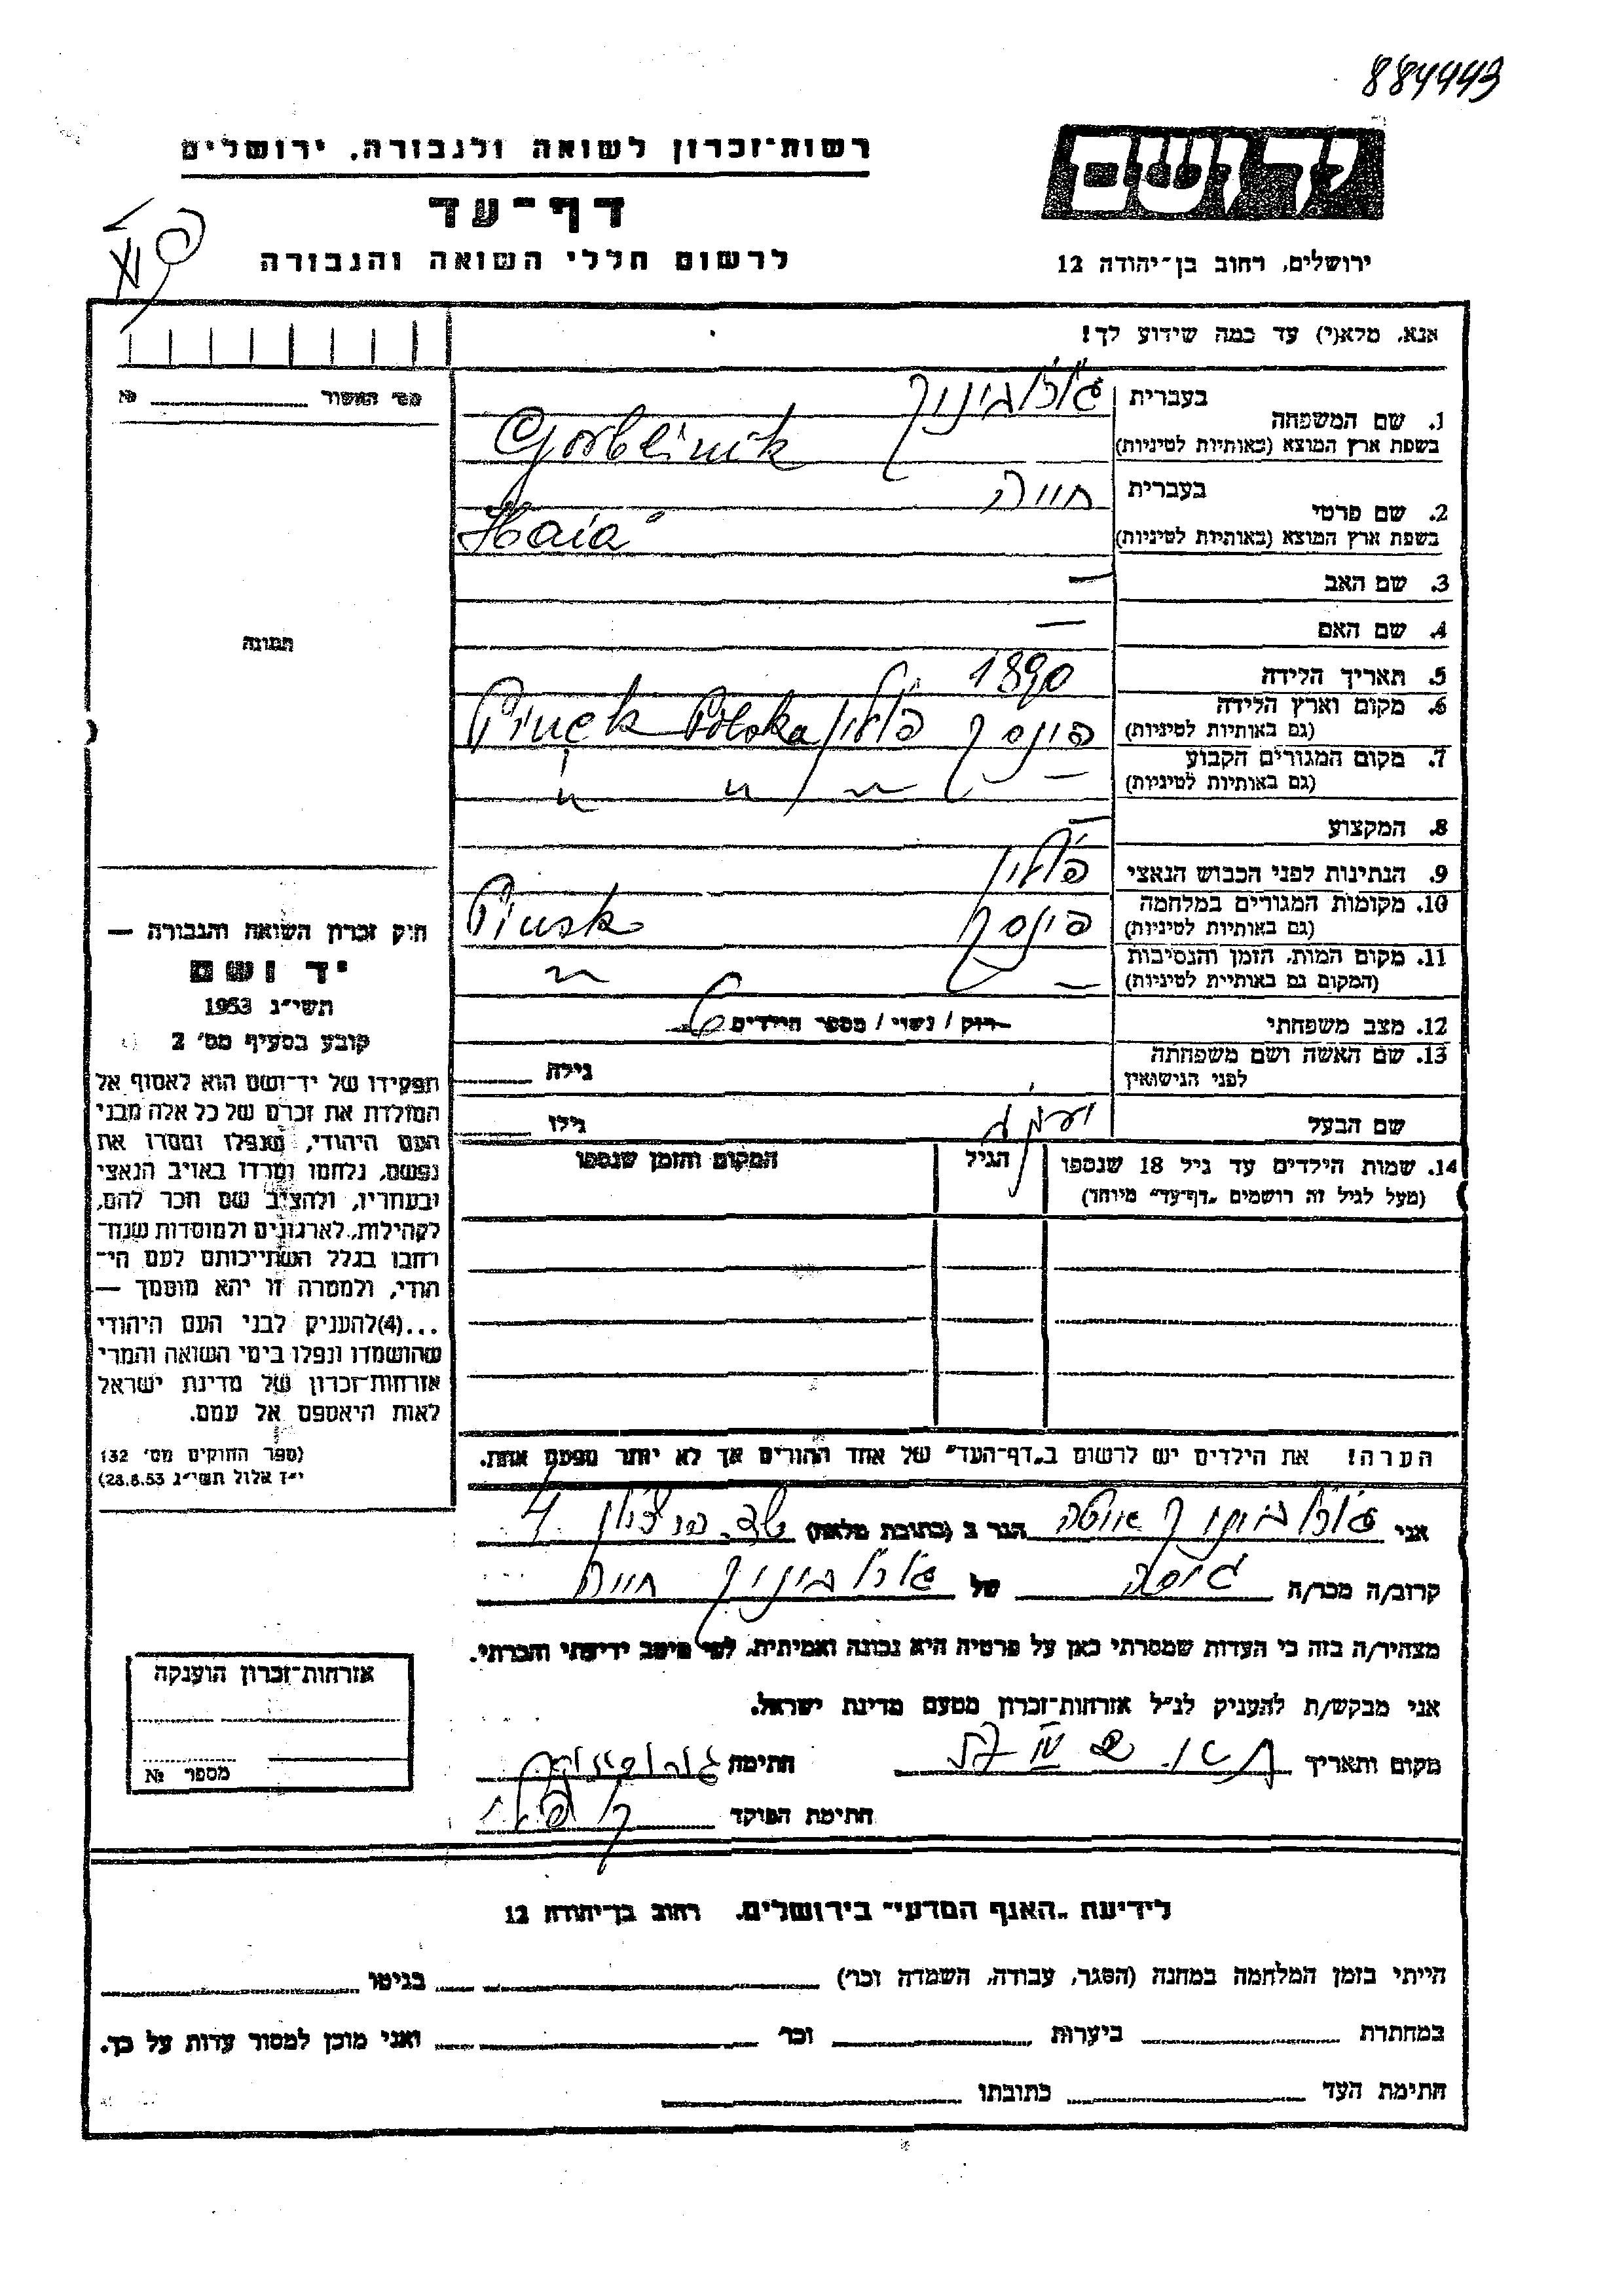 884443
רשות־זכרון לשואה ולגבורה, ירושלים
יד ושם
דף־עד
לרשום חללי השואה והגבורה
ירושלים, רחוב בן־יהודה 12
אנא, מלא(י) עד כמה שידוע לך!
מס' האשור № 
1. שם המשפחה בעברית
בשפת ארץ המוצא (באותיות לטיניות) Gorbeinik
2. שם פרטי בעברית חייה
בשפת ארץ המוצא (באותיות לטיניות) Haia
3. שם האב —
4. שם האם —
תמונה
5. תאריך הלידה 1890
6. מקום וארץ הלידה פינסק פולין Pinsk Polska
(גם באותיות לטיניות)
7. מקום המגורים הקבוע
(גם באותיות לטיניות) — " — " "
8. המקצוע —
9. הנתינות לפני הכבוש הנאצי פולין
10. מקומות המגורים במלחמה פינסק Pinsk
(גם באותיות לטיניות)
11. מקום המות, הזמן והנסיבות
(המקום גם באותיות לטיניות) — "
12. מצב משפחתי רווק / נשוי / מספר הילדים
13. שם האשה ושם משפחתה
לפני הנישואין
גילה
שם הבעל יעקב גילו
14. שמות הילדים עד גיל 18 שנספו
(מעל לגיל זה רושמים „דף־עד” מיוחד)
הגיל
המקום והזמן שנספו
חוק זכרון השואה והגבורה —
יד ושם
תשי"ג 1953
קובע בסעיף מס' 2
תפקידו של יד־ושם הוא לאסוף אל
המולדת את זכרם של כל אלה מבני
העם היהודי, שנפלו ומסרו את
נפשם, נלחמו ומרדו באויב הנאצי
ובעוזריו, ולהציב שם וזכר להם,
לקהילות, לארגונים ולמוסדות שנח־
רבו בגלל השתייכותם לעם הי־
הודי, ולמטרה זו יהא מוסמך —
...(4)להעניק לבני העם היהודי
שהושמדו ונפלו בימי השואה והמרי
אזרחות־זכרון של מדינת ישראל
לאות היאספם אל עמם.
(ספר החוקים מס' 132
י"ז אלול תשי"ג 28.8.53)
הערה! את הילדים יש לרשום ב„דף־העד” של אחד ההורים אך לא יותר מפעם אחת.
אני הגר ב (כתובת מלאה) 4
קרוב/ה מכר/ה גיסה של חייה
מצהיר/ה בזה כי העדות שמסרתי כאן על פרטיה היא נכונה ואמיתית, לפי מיטב ידיעתי והכרתי.
אני מבקש/ת להעניק לנ"ל אזרחות־זכרון מטעם מדינת ישראל.
מקום ותאריך חתימה
חתימת הפוקד
אזרחות־זכרון הוענקה
מספר №
לידיעת „האגף המדעי” בירושלים, רחוב בן־יהודה 12
הייתי בזמן המלחמה במחנה (הסגר, עבודה, השמדה וכו') בגיטו
במחתרת ביערות וכו' ואני מוכן למסור עדות על כך.
חתימת העד כתובתו